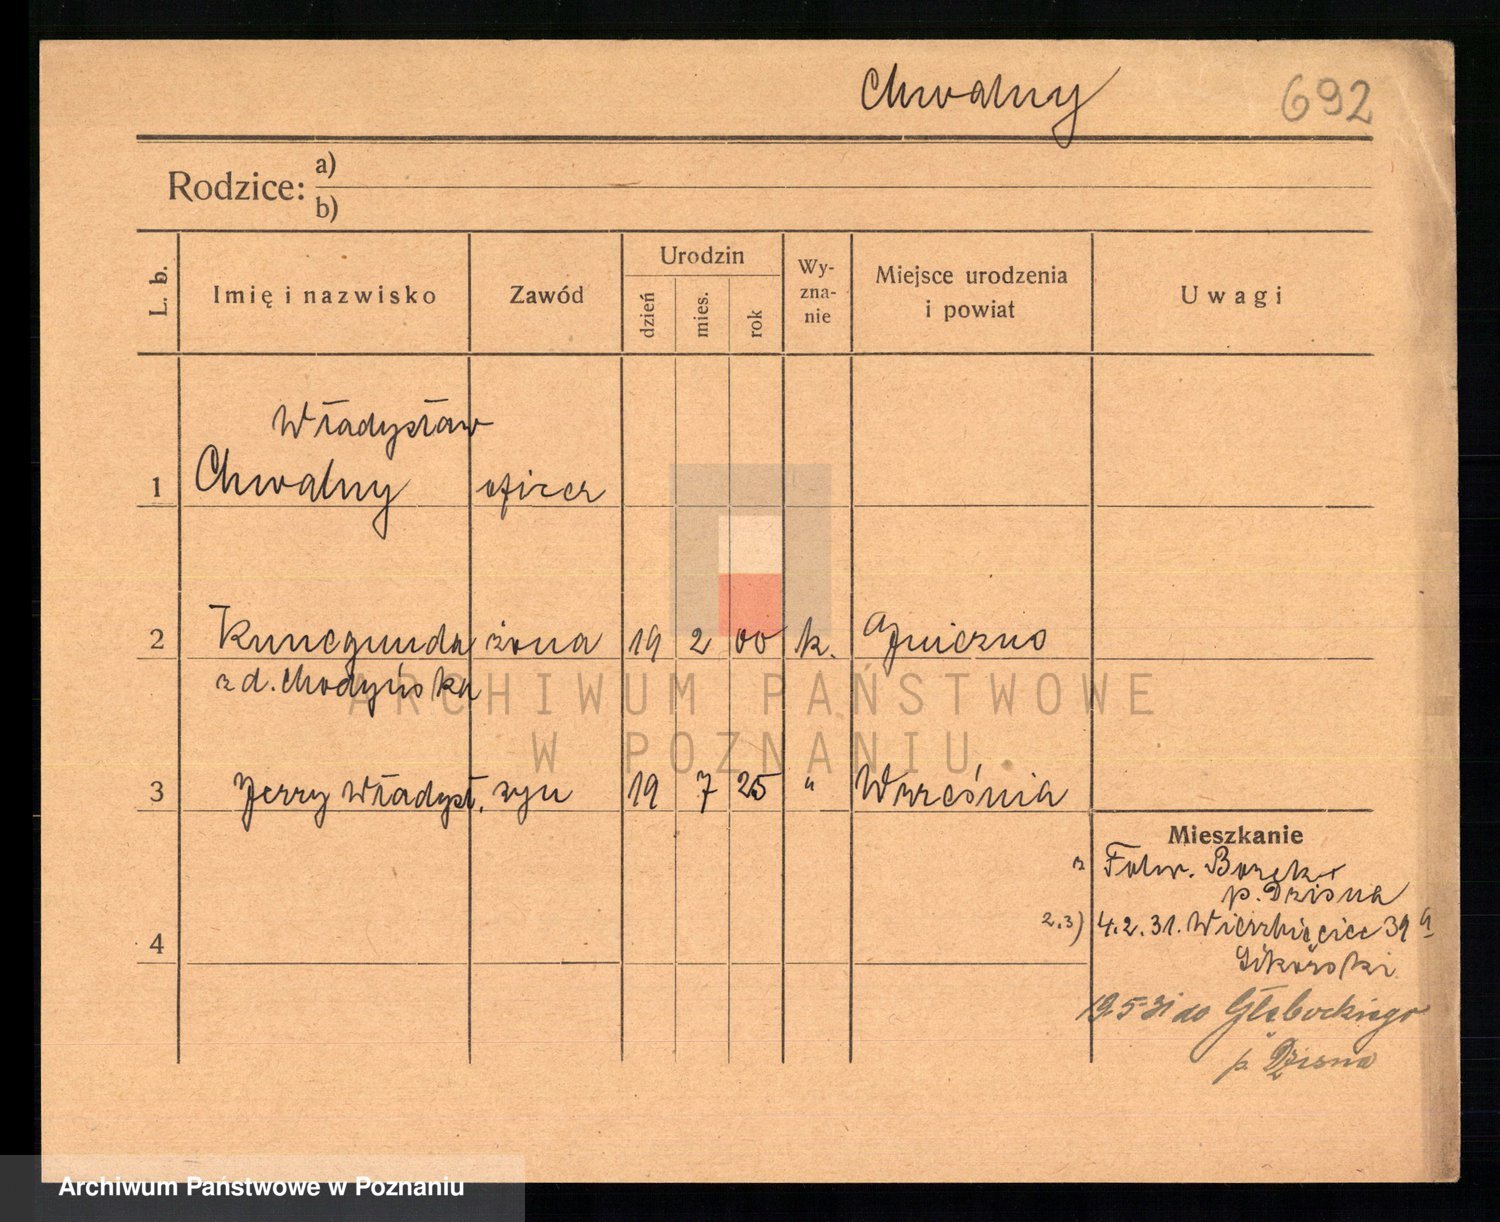 Chwalny
692
Rodzice: a)
b)
L. b.
Imię i nazwisko
Zawód
Urodzin
dzień
mies.
rok
Wy-
zna-
nie
Miejsce urodzenia
i powiat
Uwagi
Władysław
1 Chwalny oficer
2 Kunegunda żona 19 2 00 k. Gniezno
z d. Chodyńska
3 Jerzy Władysł. syn 19 7 25 " Września
4
Mieszkanie
z Folw. Borek
p. Dzisna
2.3) 4.2.31. Wierzbięcice 39a
Sikorski
19.5.31 do Głębockiego
p. Dzisna
ARCHIWUM PAŃSTWOWE
W POZNANIU.
Archiwum Państwowe w Poznaniu